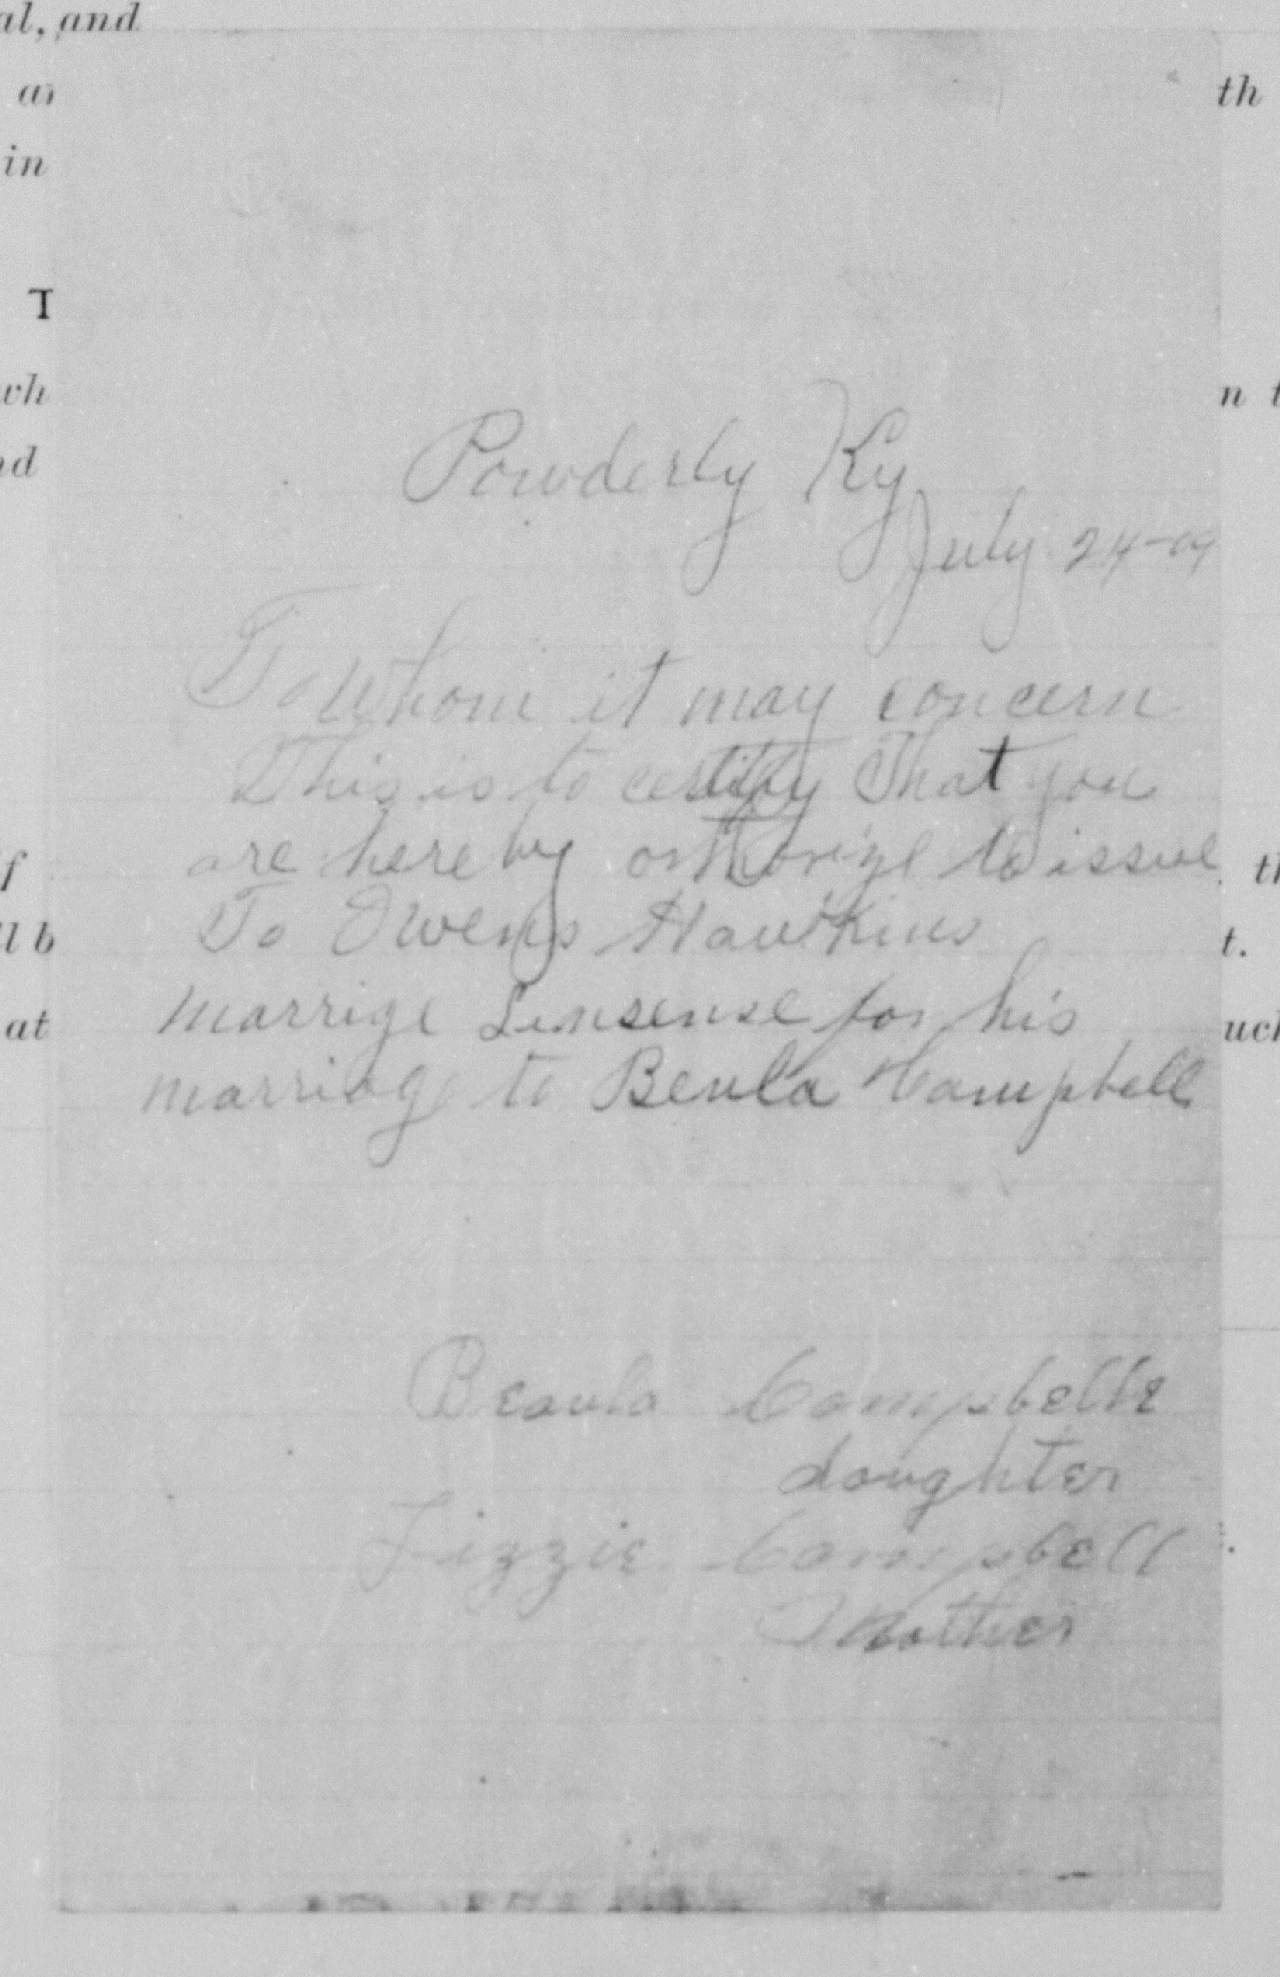 al, and
th
in
T
wh
n t
nd
Powderly Ky
July 24-09
To Whom it may concern
This is to certify That you
are hereby orthorize to issue
To Owens Hawkins
marrige Linsense for his
marriage to Beula Campbell
f
th
ll b
t.
at
uch
Beaula Campbelle
daughter
Lizzie Campbell
Mother